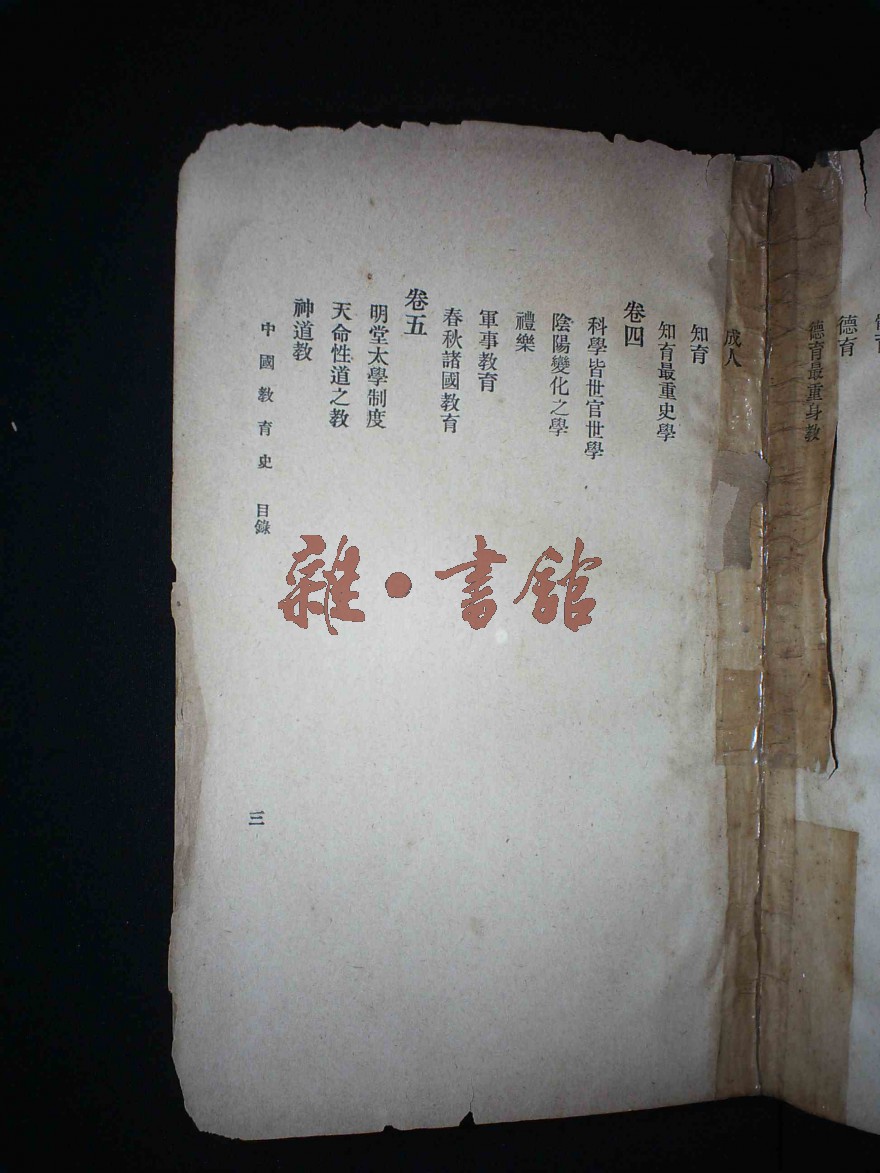 德育
德育最重身教
成人
知育
知育最重史學
卷四
科學皆世官世學
陰陽變化之學
禮樂
軍事教育
春秋諸國教育
卷五
明堂太學制度
天命性道之教
神道教
中國教育史 目錄
三
雜•書館